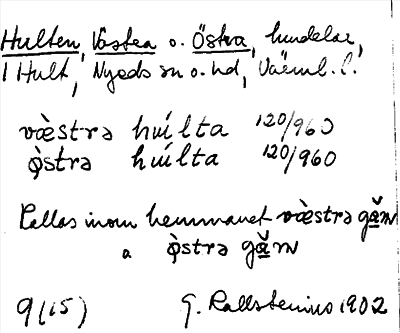 Hulten, Västra o. Östra, hindelar,
i Hult, Nyeds sn o. hd, Värml. l.
væ̀strə huìlta 120/960
ø̀strə huìlta 120/960
Kallas inom hemmanet væ̀strə gǻɳ
a ø̀strə gǻɳ
9(15) G. Kallstenius 1902